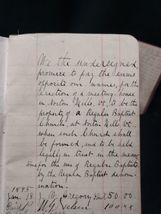 We the undersigned
promise to pay the sums
opposite our names, for the
erection of a meeting house
in Norton Mills, Vt., To be the
property of a Regular Baptist
Church, at Norton Mills Vt.
when such Church shall
be formed, and to be held
legally in trust in the meantime
for the use of Regular Baptists
by the Regular Baptist denom-
ination.
1885
Jan. 18 Gregory 50.00
Nelson 100.00